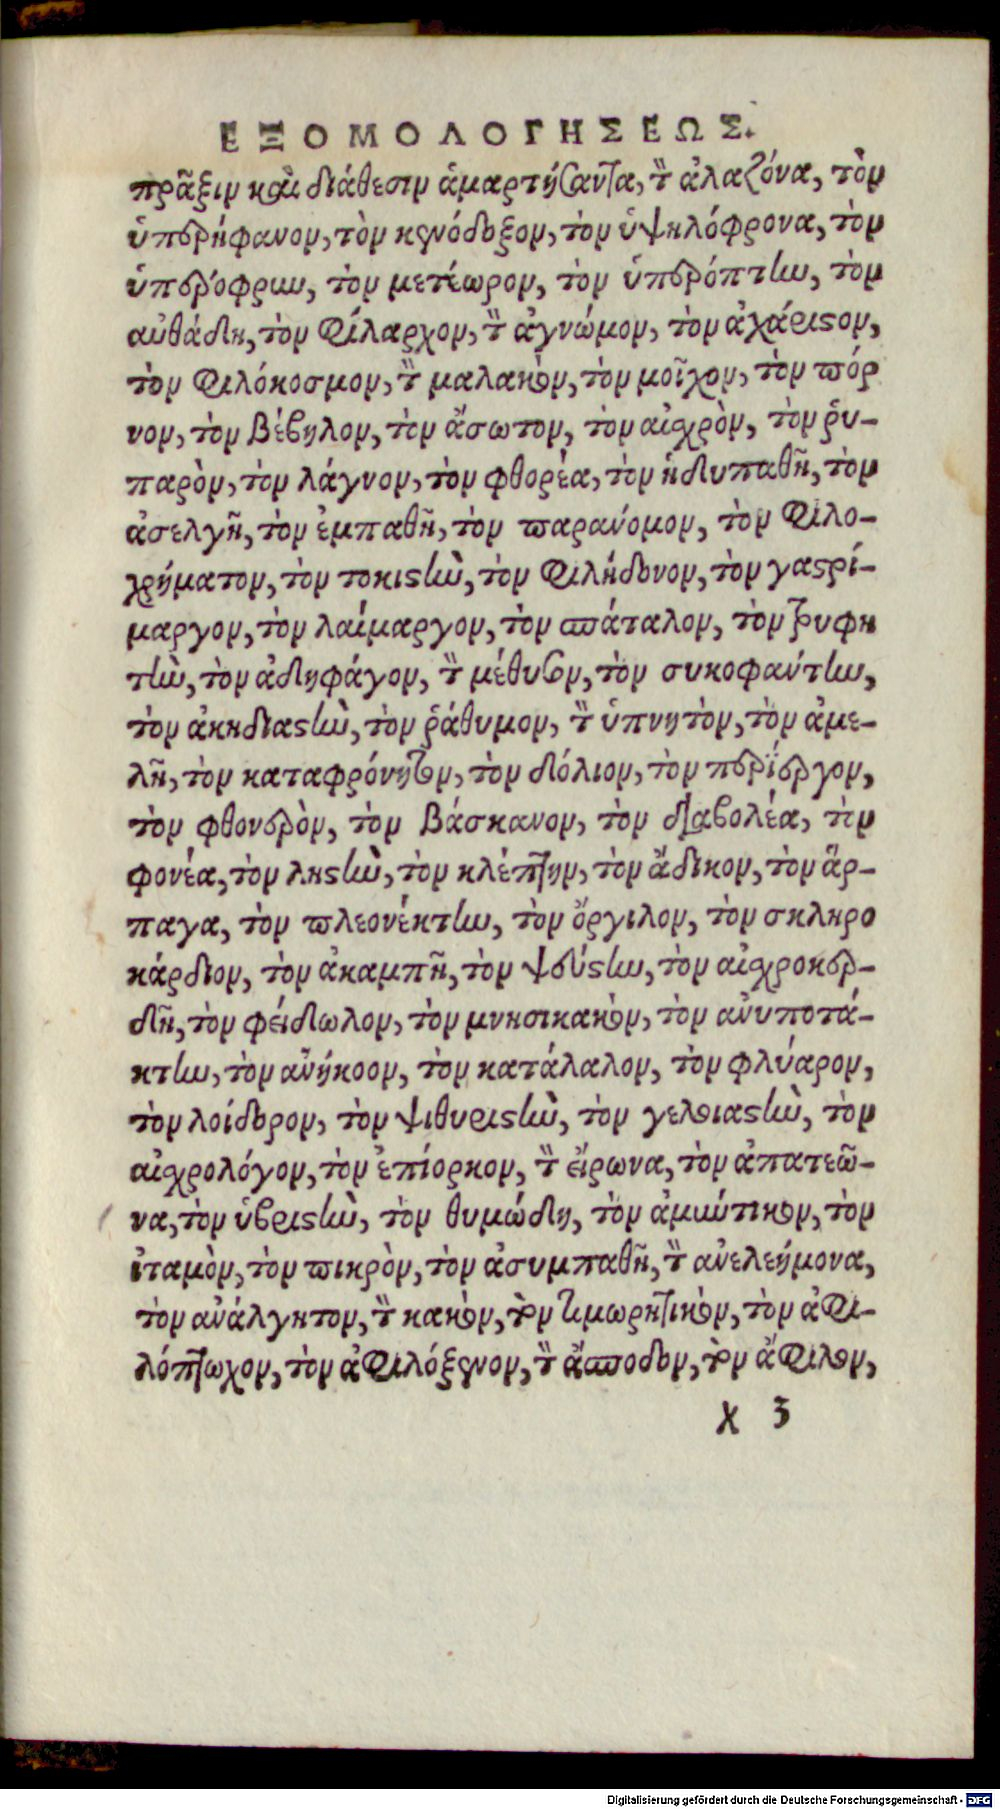 ΕΞΟΜΟΛΟΓΗΣΕΩΣ.
πρᾶξιν καὶ διάθεσιν ἁμαρτήσαντα, τ̀ ἀλαζόνα, τὸν
ὑπερήφανον, τὸν κενόδοξον, τὸν ὑψηλόφρονα, τὸν
ὑπερόφρων, τὸν μετέωρον, τὸν ὑπερόπτην, τὸν
αὐθάδη, τὸν φίλαρχον, τ̀ ἀγνώμον, τὸν ἀχάριστον,
τὸν φιλόκοσμον, τ̀ μαλακὸν, τὸν μοῖχον, τὸν πόρ
νον, τὸν βέβηλον, τὸν ἄσωτον, τὸν αἰχρὸν, τὸν ῥυ-
παρὸν, τὸν λάγνον, τὸν φθορέα, τὸν ἡδυπαθῆ, τὸν
ἀσελγῆ, τὸν ἐμπαθῆ, τὸν παρανόμον, τὸν φιλο-
χρήματον, τὸν τοκιστὴν, τὸν φιλήδονον, τὸν γαστρί-
μαργον, τὸν λαίμαργον, τὸν πάταλον, τὸν τρυφη
τὴν, τὸν ἀδηφάγον, τ̀ μέθυσον, τὸν συκοφαντην,
τὸν ἀκηδιαστὴν, τὸν ῥάθυμον, τ̀ ὑπνητὸν, τὸν ἀμε-
λῆ, τὸν καταφρόνητον, τὸν δόλιον, τὸν περίεργον,
τὸν φθονερὸν, τὸν βάσκανον, τὸν διαβολέα, τὸν
φονέα, τὸν ληστὴν, τὸν κλέπτην, τὸν ἄδικον, τὸν ἅρ-
παγα, τὸν πλεονέκτην, τὸν ὄργιλον, τὸν σκληρο
κάρδιον, τὸν ἀκαμπῆ, τὸν ψεύστην, τὸν αἰχροκερ-
δῆ, τὸν φείδωλον, τὸν μνησικακὸν, τὸν ἀνυποτά-
κτην, τὸν ἀνήκοον, τὸν κατάλαλον, τὸν φλύαρον,
τὸν λοίδορον, τὸν ψιθυριστὴν, τὸν γελοιαστὴν, τὸν
αἰχρολόγον, τὸν ἐπίορκον, τ̀ εἴρωνα, τὸν ἀπατεῶ-
να, τὸν ὑβριστὴν, τὸν θυμώδη, τὸν ἀμυώτικον, τὸν
ἰταμὸν, τὸν πικρὸν, τὸν ἀσυμπαθῆ, τ̀ ἀνελεήμονα,
τὸν ἀνάλγητον, τ̀ κακὸν, τὸν τιμωρητικὸν, τὸν ἀφι-
λόπτωχον, τὸν ἀφιλόξενον, τ̀ ἄσποδον, τὸν ἄφιλον,
χ 3
Digitalisierung gefördert durch die Deutsche Forschungsgemeinschaft - DFG